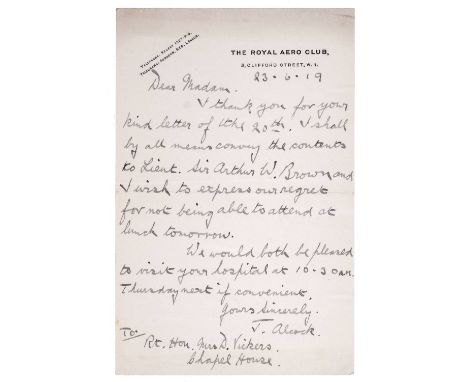 THE ROYAL AERO CLUB,
3, CLIFFORD STREET, W. 1.
23·6·19
Dear Madam.
I thank you for your
kind letter of the 20th. I shall
by all means convey the contents
to Lieut. Sir Arthur W. Brown and
I wish to express our regret
for not being able to attend at
lunch tomorrow.
We would both be pleased
to visit your hospital at 10-30 am.
Thursday next if convenient.
Yours Sincerely.
J. Alcock.
To
Rt. Hon. Mrs D. Vickers.
Chapel House.